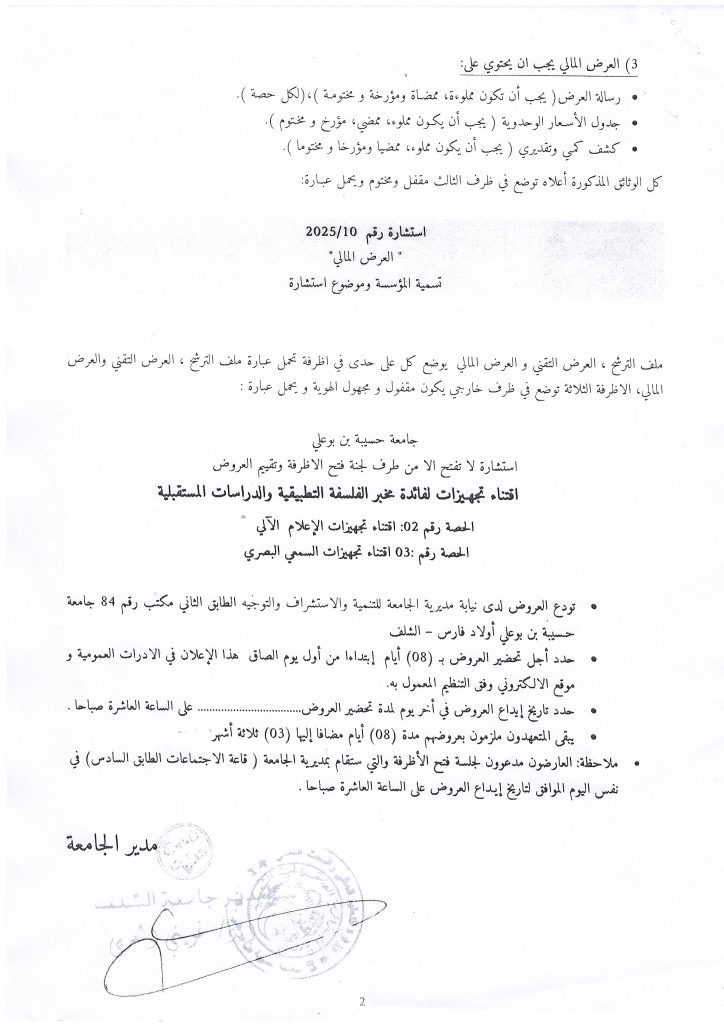 3) العرض المالي يجب ان يحتوي على:
• رسالة العرض( يجب أن تكون مملوءة، ممضاة ومؤرخة و مختومة )،(لكل حصة ).
• جدول الأسعار الوحدوية ( يجب أن يكون مملوء، ممضي، مؤرخ و مختوم ).
• كشف كمي وتقديري ( يجب أن يكون مملوء، ممضيا ومؤرخا و مختوما ).
كل الوثائق المذكورة أعلاه توضع في ظرف الثالث مقفل ومختوم ويحمل عبارة:
استشارة رقم 2025/10
" العرض المالي"
تسمية المؤسسة وموضوع استشارة
ملف الترشح ، العرض التقني و العرض المالي يوضع كل على حدى في اظرفة تحمل عبارة ملف الترشح ، العرض التقني والعرض
المالي، الاظرفة الثلاثة توضع في ظرف خارجي يكون مقفول و مجهول الهوية و يحمل عبارة :
جامعة حسيبة بن بوعلي
استشارة لا تفتح الا من طرف لجنة فتح الاظرفة وتقييم العروض
اقتناء تجهيزات لفائدة مخبر الفلسفة التطبيقية والدراسات المستقبلية
الحصة رقم 02: اقتناء تجهيزات الإعلام الآلي
الحصة رقم :03 اقتناء تجهيزات السمعي البصري
• تودع العروض لدى نيابة مديرية الجامعة للتنمية والاستشراف والتوجيه الطابق الثاني مكتب رقم 84 جامعة
حسيبة بن بوعلي أولاد فارس – الشلف
• حدد أجل تحضير العروض بـ (08) أيام إبتداءا من أول يوم الصاق هذا الإعلان في الادرات العمومية و
موقع الالكتروني وفق التنظيم المعمول به.
• حدد تاريخ إيداع العروض في أخر يوم لمدة تحضير العروض................................... على الساعة العاشرة صباحا .
• يبقى المتعهدون ملزمون بعروضهم مدة (08) أيام مضافا إليها (03) ثلاثة أشهر
• ملاحظة: العارضون مدعوون لجلسة فتح الأظرفة والتي ستقام بمديرية الجامعة ( قاعة الاجتماعات الطابق السادس) في
نفس اليوم الموافق لتاريخ إيداع العروض على الساعة العاشرة صباحا .
مدير الجامعة
مدير جامعة الشلف
2